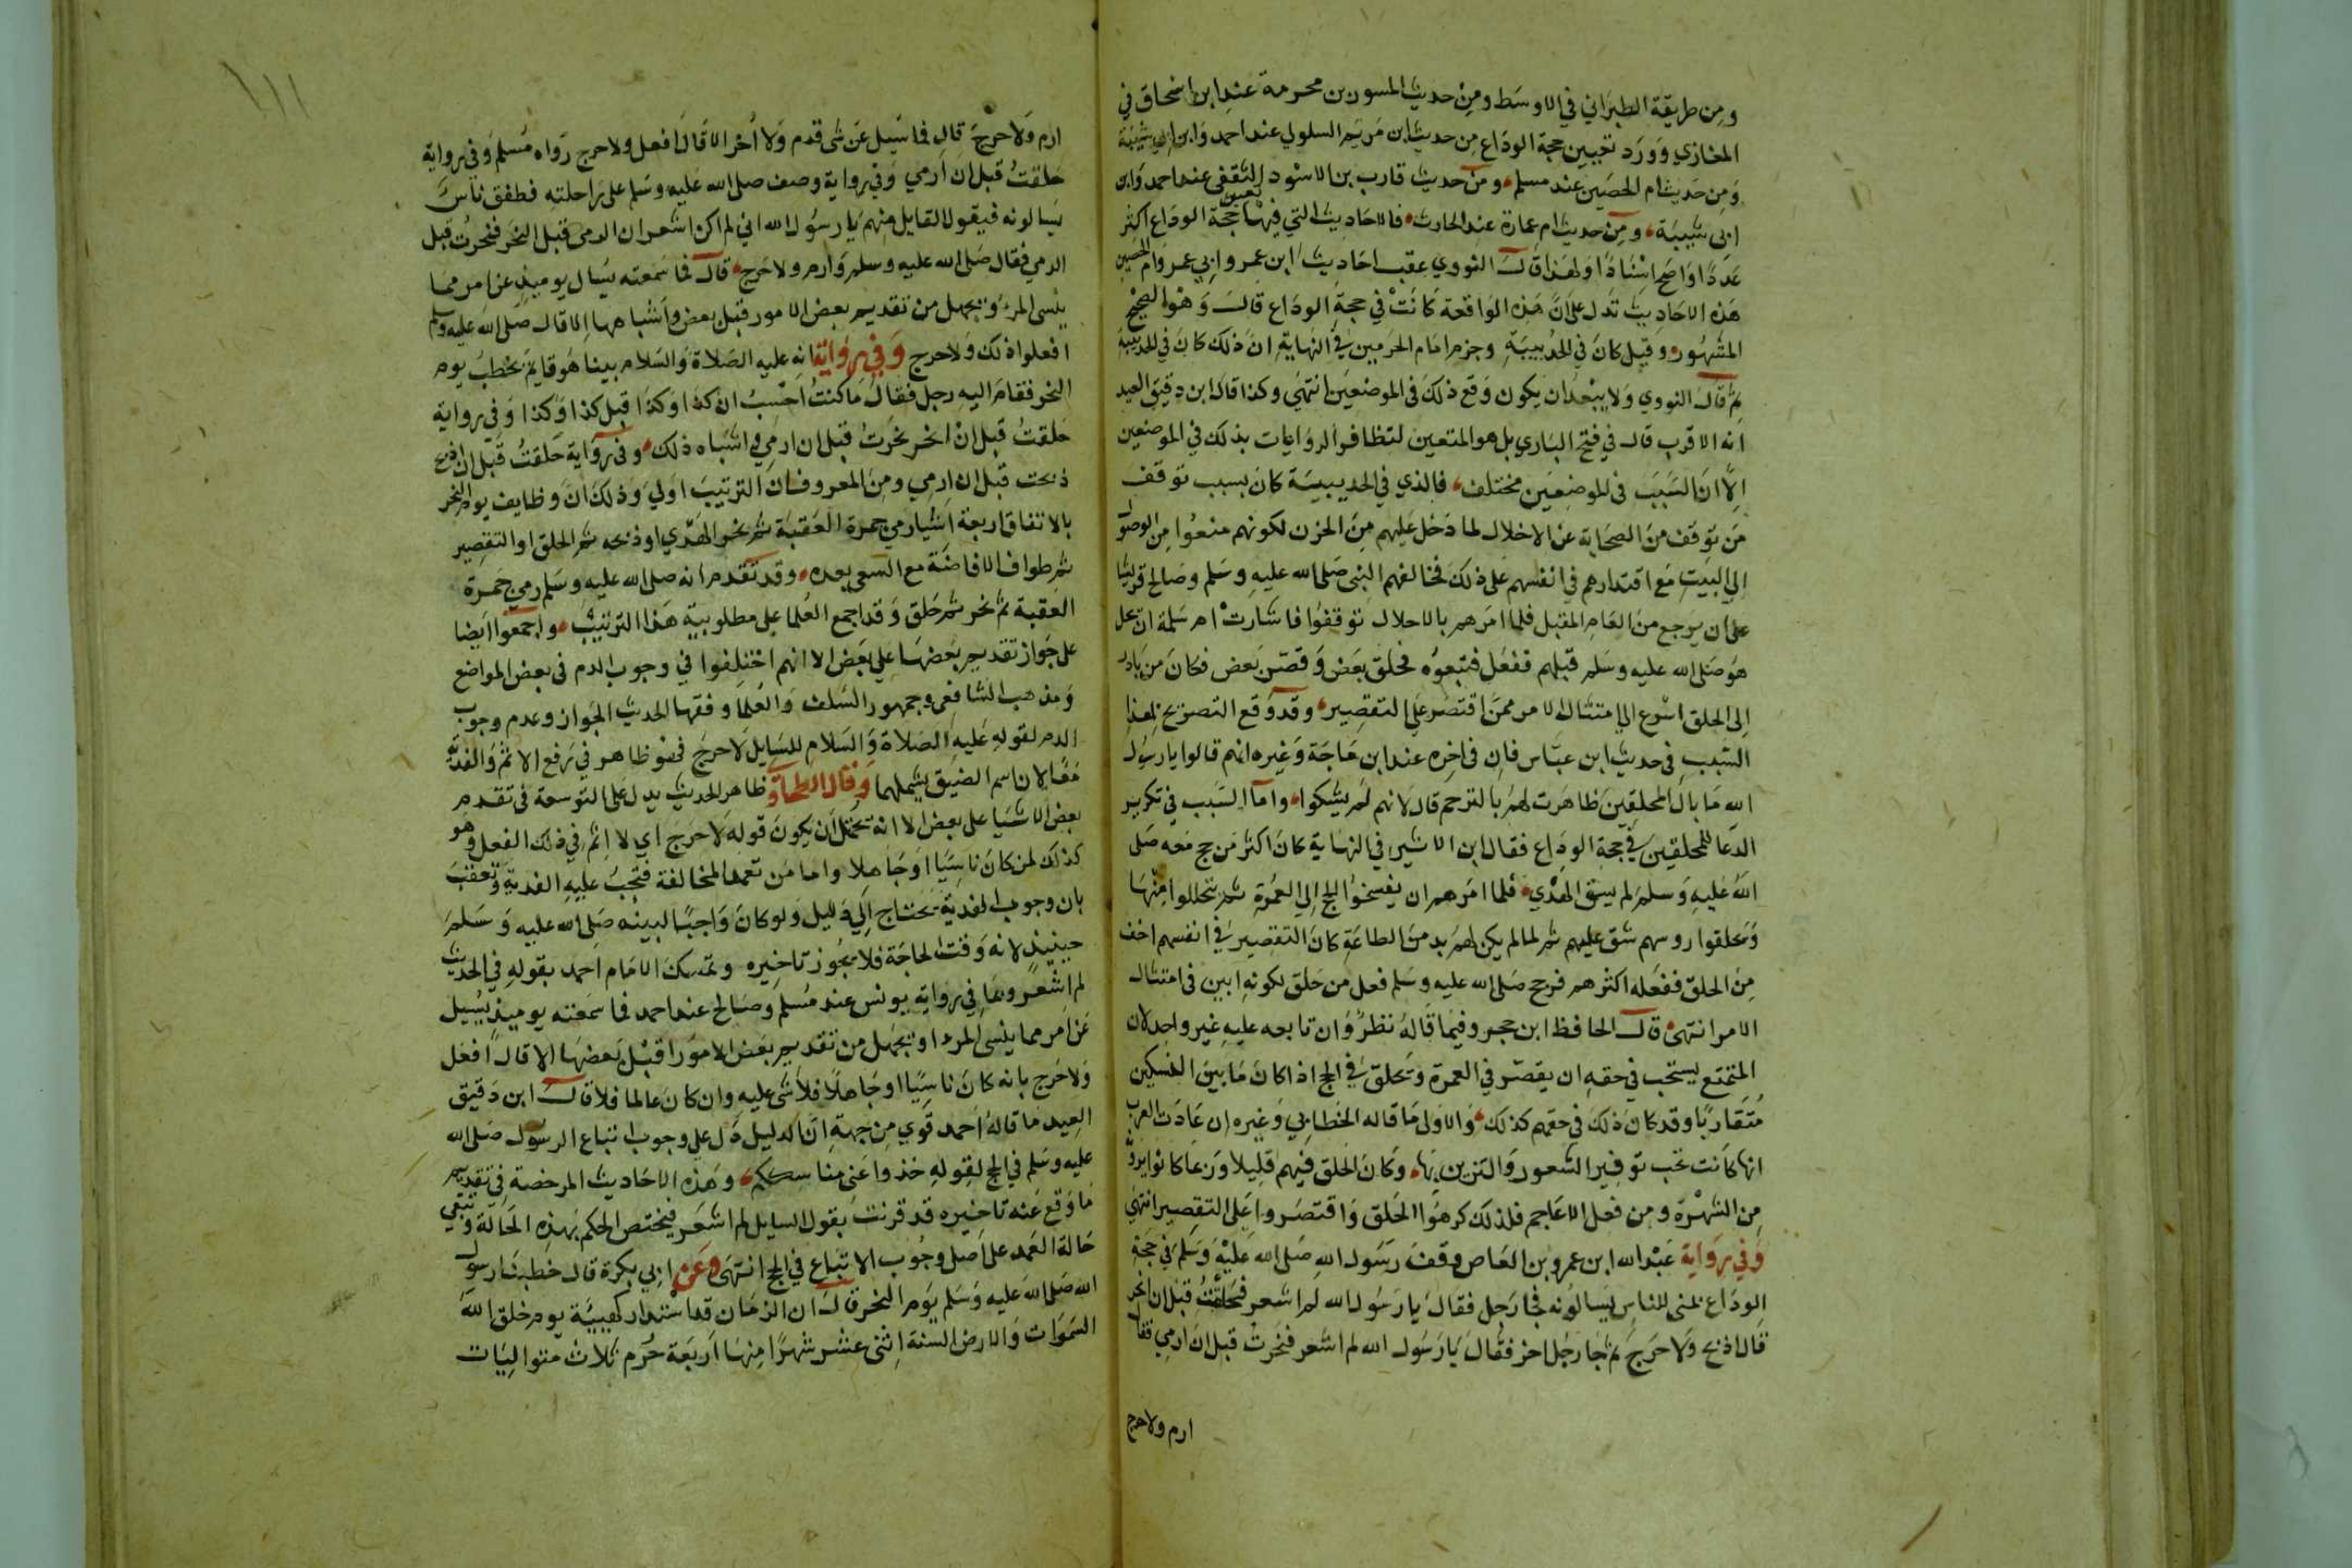 ومن طريقة الطبراني في الاوسط ومن حديث المسور بن محرمة عند ابن اسحاق في
المغازي وورد تعيين حجة الوداع من حديث ابن مريم السلولي عند احمد وابن ابي شيبة
ومن حديث ام الحصين عند مسلم ومن حديث قارب بن الاسود الثقفي عند احمد وابن
ابي شيبة ومن حديث ام عمارة عند الحارث فالاحاديث التي فيها تعيين حجة الوداع اكثر
عددا واصح اسنادا ولهذا قال النووي عقب احاديث ابن عمر وابي عمر وام الحصين
هذه الاحاديث تدل على ان هذه الواقعة كانت في حجة الوداع قال وهو الصحيح
المشهور وقيل كان في الحديبية وجزم امام الحرمين في النهاية ان ذلك كان في الحديبية
ثم قال النووي ولا يبعد ان يكون وقع ذلك في الموضعين انتهي وكذا قال ابن دقيق العيد
انه الاقرب قال في فتح الباري بل هو المتعين لتظافر الروايات بذلك في الموضعين
الا ان السبب في الموضعين مختلف فالذي في الحديبية كان بسبب توقف
من توقف من الصحابة عن الاحلال لما دخل عليهم من الحزن لكونهم منعوا من الوصول
الي البيت مع اقتدارهم في انفسهم على ذلك فخالفهم النبي صلى الله عليه وسلم وصالح قريشا
على ان يرجع من العام المقبل فلما امرهم بالاحلال توقفوا فاشارت ام سلمة ان يحل
هو صلى الله عليه وسلم قبلهم ففعل فتبعوه فحلق بعض وقصر بعض فكان من بادر
الى الحلق اسرع الي امتثال الامر ممن اقتصر علي التقصير وقد وقع التصريح بهذا
السبب في حديث ابن عباس فان في اخره عند ابن ماجة وغيره انهم قالوا يا رسول
الله ما بال المحلقين ظاهرت لهم بالترحم قال لانهم لم يشكوا واما السبب في تكرير
الدعا للمحلقين في حجة الوداع فقال ابن الاثير في النهاية كان اكثر من حج معه صلى
الله عليه وسلم لم يسق الهدي فلما امرهم ان يفسخوا الحج الي العمرة ثم يتحللوا منها
ويحلقوا روسهم شق عليهم ثم لما لم يكن لهم بد من الطاعة كان التقصير في انفسهم اخف
من الحلق ففعله اكثرهم فرجح صلى الله عليه وسلم فعل من حلق لكونه ابين في امتثال
الامر انتهى قال الحافظ ابن حجر وفيما قاله نظر وان تابعه عليه غير واحد لان
المتمتع يستحب في حقه ان يقصر في العمرة ويحلق في الحج اذا كان ما بين النسكين
متقاربا وقد كان ذلك في حقهم كذلك والاولى ما قاله الخطابي وغيره ان عادت العرب
انها كانت تحب توفير الشعور والتزين بها وكان الحلق فيهم قليلا وربما كانوا يرونه
من الشهرة ومن فعل الاعاجم فلذلك كرهوا الحلق واقتصروا على التقصير انتهي
وفي رواية عبد الله ابن عمرو بن العاص وقف رسول الله صلى الله عليه وسلم في حجة
الوداع بمنى للناس يسالونه فجا رجل فقال يا رسول الله لم اشعر فحلقت قبل ان انحر
قال اذبح ولا حرج ثم جا رجل اخر فقال يا رسول الله لم اشعر فنحرت قبل ان ارمي فقال
ارم ولا حرج
١١١
ارم ولا حرج قال فما سيل عن شى قدم ولا اخر الا قال افعل ولا حرج رواه مسلم وفي رواية
حلقت قبل ان ارمي وفي رواية وصف صلى الله عليه وسلم على راحلته فطفق ناس
يسالونه فيقول القايل منهم يا رسول الله اني لم اكن اشعر ان الرمى قبل النحر فنحرت قبل
الرمي فقال صلى الله عليه وسلم وارم ولا حرج قال فما سمعته يسال يوميذ عن امر مما
ينسى المرء ويجهل من تقديم بعض الامور قبل بعض واشباهها الا قال صلى الله عليه وسلم
افعلوا ذلك ولا حرج وفي رواية انه عليه الصلاة والسلام بينا هو قايم يخطب يوم
النحر فقام اليه رجل فقال ما كنت احسب ان كذا وكذا قبل كذا وكذا وفي رواية
حلقت قبل ان انحر نحرت قبل ان ارمي في اشباه ذلك وفي رواية حلقت قبل ان اذبح
ذبحت قبل ان ارمي ومن المعروف ان الترتيب اولي وذلك ان وظايف يوم النحر
بالاتفاق اربعة اشيا رمي جمرة العقبة ثم نحر الهدي او ذبحه ثم الحلق او التقصير
ثم طواف الافاضة مع السعي بعده وقد تقدم انه صلى الله عليه وسلم رمي جمرة
العقبة ثم نحر ثم حلق وقد اجمع العلما على مطلوبية هذا الترتيب واجمعوا ايضا
على جواز تقديم بعضها علي بعض الا انهم اختلفوا في وجوب الدم في بعض المواضع
ومذهب الشافعي وجمهور السلف والعلما وفقها الحديث الجواز وعدم وجوب
الدم لقوله عليه الصلاة والسلام للسايل لا حرج فهو ظاهر في رفع الاثم والفدية
معا لان اسم الضيق يشملهما وقال الطحاوي ظاهر الحديث يدل على التوسعة في تقدم
بعض الاشيا على بعض الا انه يحتمل ان يكون قوله لا حرج اي لا اثم في ذلك الفعل وهو
كذلك لمن كان ناسيا او جاهلا واما من تعمد المخالفة فتجب عليه الفدية وتعقب
بان وجوب الفدية يحتاج الي دليل ولو كان واجبا لبينه صلى الله عليه وسلم
حينيذ لانه وقت الحاجة فلا يجوز تاخيره وتمسك الامام احمد بقوله في الحديث
لم اشعر وبما في رواية يونس عند مسلم وصالح عند احمد فما سمعته يوميذ يسيل
عن امر مما ينسى المرء او يجهل من تقديم بعض الامور قبل بعضها الا قال افعل
ولا حرج بانه كان ناسيا او جاهلا فلا شى عليه وان كان عالما فلا قال ابن دقيق
العيد ما قاله احمد قوي من جهة ان الدليل دل علي وجوب اتباع الرسول صلى الله
عليه وسلم في الحج لقوله خذوا عنى مناسككم وهذه الاحاديث المرخصة في تقديم
ما وقع عنه تاخيره قد قرنت بقول السايل لم اشعر فيختص الحكم بهذه الحالة وتبقي
حالة العمد على اصل وجوب الاتباع في الحج انتهى وعن ابي بكرة قال خطبنا رسول
الله صلى الله عليه وسلم يوم النحر قال ان الزمان قد استدار كهيية يوم خلق الله
السموات والارض السنة اثنى عشر شهرا منها اربعة حرم ثلاث متواليات